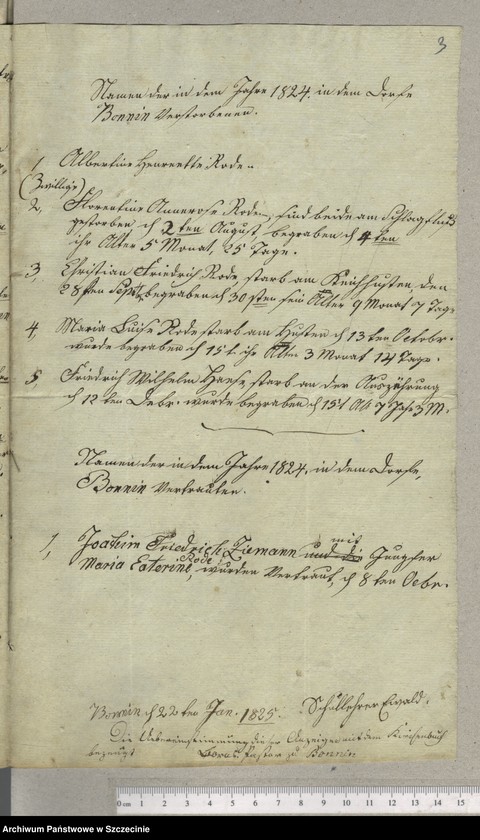 3
Namen der in dem Jahre 1824. in dem Dorfe
Bonnin Verstorbenen.
1, Albertine Henreette Rode.
(Zwillige)
2, Florentine Annerose Rode, sind beide am Schlagfluß
gestorben d 2ten August, begraben d 4ten
ihr Alter 5 Monat 25 Tage.
3, Christian Friedrich Rode starb am Keichhusten den
28sten Sept, begraben d 30sten sein Alter 9 Monat 7 Tage
4, Maria Luise Rode starb am Husten d 13ten Octobr.
wurde begraben d 15t. ihr Alter 3 Monat 14 Tage.
5, Friedrich Wilhelm Haese starb an der Auszehrung
d 12ten Debr. wurde begraben d 15t Alt 7 Jahr 3 M.
Namen der in dem Jahre 1824. in dem Dorfe,
Bonnin Vertrauten.
1, Joachim Friedrich Ziemann und die mit Jungfer
Maria Caterine Rode, wurden Vertraut, d 8ten Oebr.
Bonnin d 22ten Jan. 1825. Schullehrer Ewald.
Die Uebereinstimmung dieser Anzeige mit dem Kirchenbuch
bezeugt Pastor zu Bonnin
0 cm 1 2 3 4 5 6 7 8 9 10 11 12 13 14 15
Archiwum Państwowe w Szczecinie